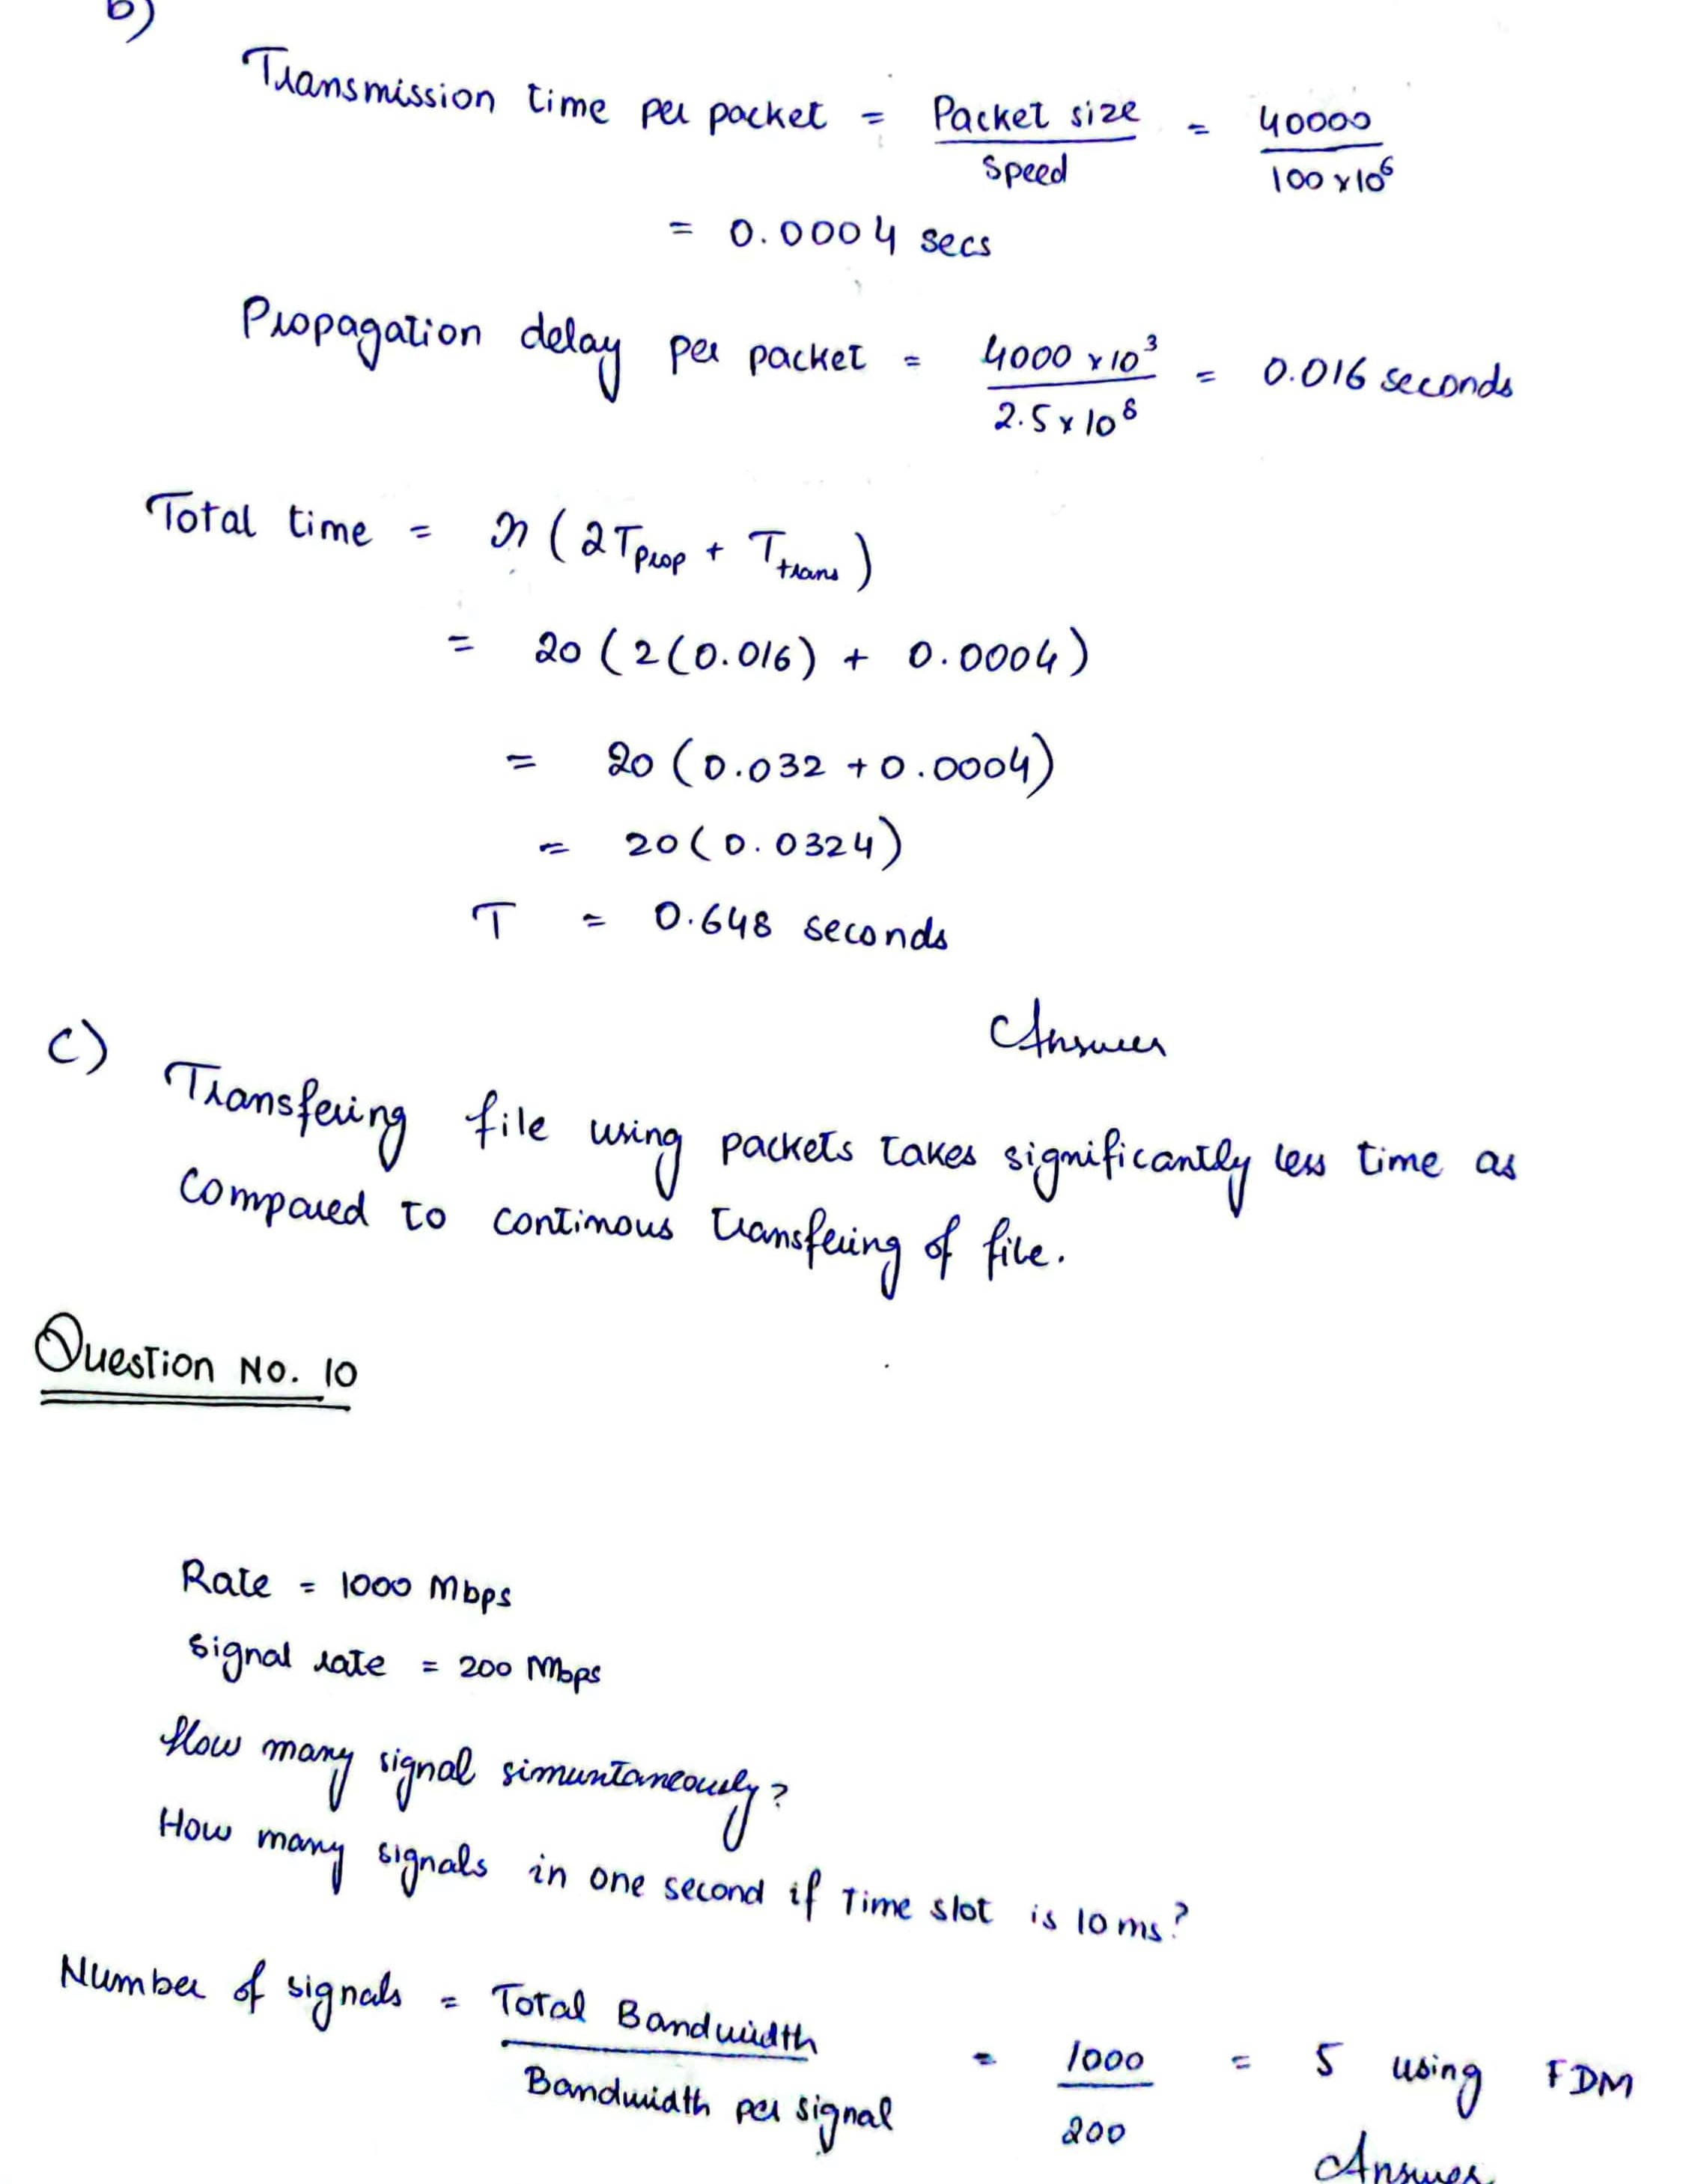 b)
Transmission time per packet = Packet size / Speed = 40000 / 100 x 10^6
= 0.0004 secs
Propagation delay per packet = 4000 x 10^3 / 2.5 x 10^8 = 0.016 seconds
Total time = n ( 2 Tprop + Ttrans )
= 20 ( 2 ( 0.016 ) + 0.0004 )
= 20 ( 0.032 + 0.0004 )
= 20 ( 0.0324 )
T = 0.648 seconds
Answer
c) Transfering file using packets takes significantly less time as
compared to continous transfering of file.
Question No. 10
Rate = 1000 Mbps
Signal rate = 200 Mbps
How many signal simuntaneously?
How many signals in one second if Time slot is 10 ms?
Number of signals = Total Bandwidth / Bandwidth per signal = 1000 / 200 = 5 using FDM
Answer